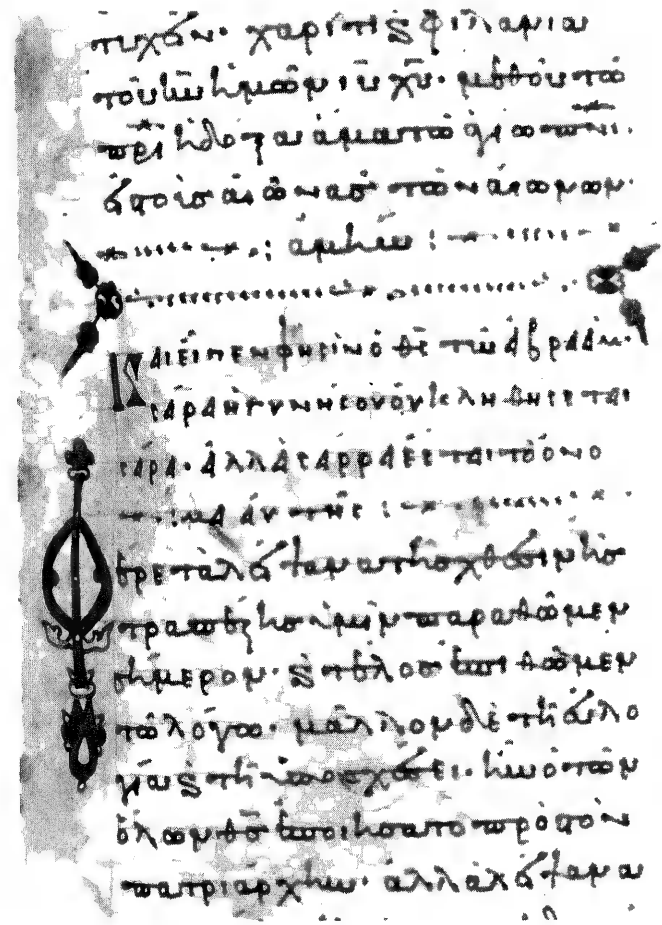 τυχεῖν· χάριτι καὶ φιλανθρωπία
τοῦ κυ ἡμῶν ιυ χυ· μεθ' οὗ τῶ
πρὶ ἡ δόξα ἅμα τῶ ἁγίω πνι·
εἰς τοὺς αἰῶνας τῶν αἰώνων·
ἀμήν:
Καὶ εἶπεν φησὶν ὁ θς τῶ ἀβραάμ·
σάρα ἡ γυνή σου οὐ κληθήσεται
σάρα· ἀλλὰ σάρρα ἔσται τὸ ὄνο
μα αὐτῆς:
τὰ λείψανα τῆς χθεσινῆς
τραπέζης ἡμῖν παραθῶμεν
σήμερον· καὶ τέλος ἐπιθῶμεν
τῶ λόγω· μᾶλλον δὲ τῆ εὐλο
γία καὶ τῆ ὑποσχέσει· ἣν ὁ τῶν
ὅλων θς ἐποιήσατο πρὸς τὸν
πατριάρχην· ἀλλὰ λείψανα